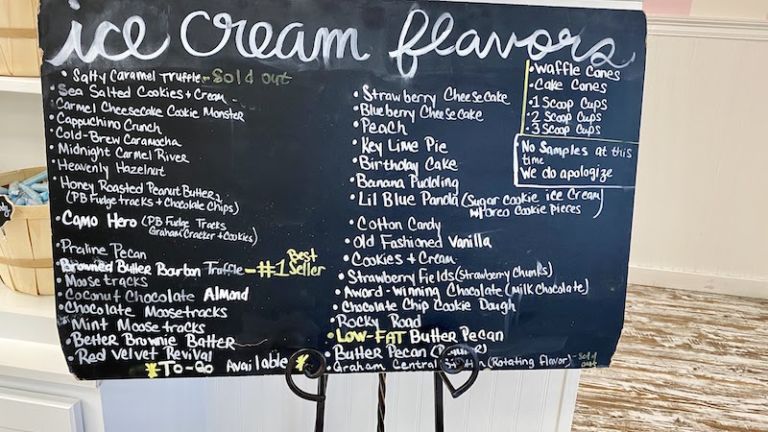 ice cream flavors
• Salty Caramel Truffle - Sold out
• Sea Salted Cookies + Cream
• Carmel Cheesecake Cookie Monster
• Cappuchino Crunch
• Cold-Brew Caramocha
• Midnight Carmel River
• Heavenly Hazelnut
• Honey Roasted Peanut Butter
(PB Fudge tracks + Chocolate Chips)
• Camo Hero (PB Fudge Tracks
Graham Cracker + Cookies)
• Praline Pecan
• Browned Butter Bourbon Truffle - #1 Best Seller
• Moose tracks
• Coconut Chocolate Almond
• Chocolate Moosetracks
• Mint Moosetracks
• Better Brownie Batter
• Red Velvet Revival
*To-Go Available *
• Strawberry Cheesecake
• Blueberry Cheesecake
• Peach
• Key Lime Pie
• Birthday Cake
• Banana Pudding
• Lil Blue Panda (Sugar Cookie ice Cream
w/oreo Cookie pieces)
• Cotton Candy
• Old Fashioned Vanilla
• Cookies + Cream
• Strawberry Fields (Strawberry Chunks)
• Award-Winning Chocolate (Milk Chocolate)
• Chocolate Chip Cookie Dough
• Rocky Road
• LOW-FAT Butter Pecan
• Butter Pecan
• Graham Central (Rotating flavor) - Sold out
• Waffle Cones
• Cake Cones
• 1 Scoop Cups
• 2 Scoop Cups
• 3 Scoop Cups
No Samples at this
time
We do apologize